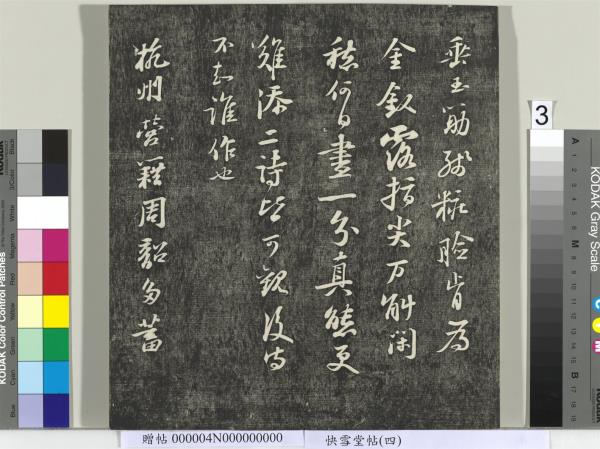 垂玉筯殘粧臉肯為
金釵露指尖万斛閑
愁何日盡一分真態更
難添二詩皆可觀後詩
不知誰作也
杭州營籍周韶多蓄
3
贈帖 000004N000000000
快雪堂帖(四)
KODAK Color Control Patches
Blue
Cyan
Green
Yellow
Red
Magenta
White
3/Color
Black
KODAK Gray Scale
A
1
2
3
4
5
6
M
8
9
10
11
12
13
14
15
B
17
18
19
C
Y
M